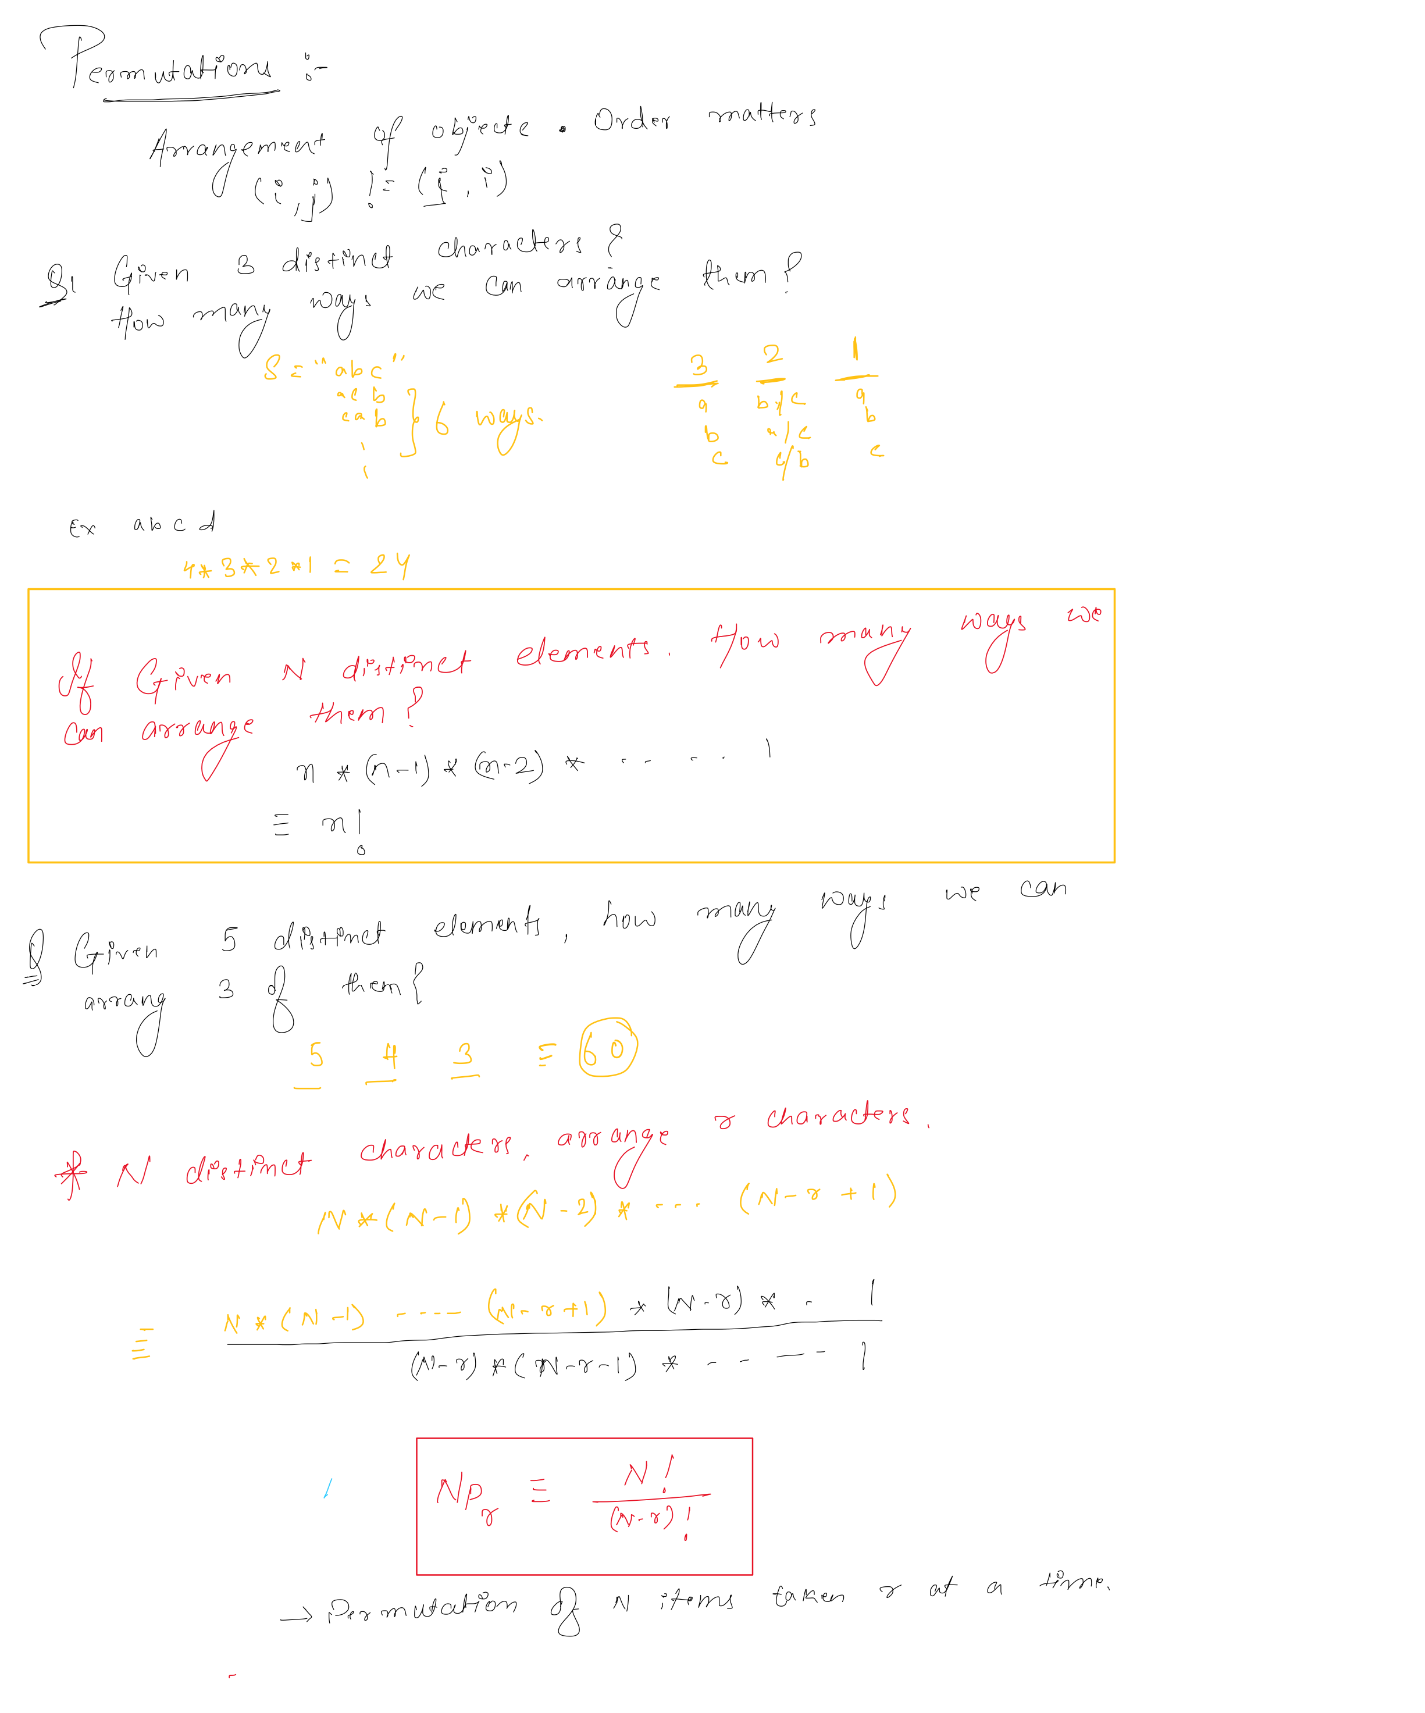 Permutations :-
Arrangement of objects . Order matters
(i,j) != (j,i)
Q1 Given 3 distinct characters ?
How many ways we can arrange them ?
S = "abc"
acb
cab
} 6 ways.
3 2 1
a b/c a
b a/c b
c c/b c
Ex abcd
4*3*2*1 = 24
If Given N distinct elements. How many ways we
can arrange them ?
n * (n-1) * (n-2) * ..... 1
≡ n!
Q Given 5 distinct elements, how many ways we can
arrang 3 of them?
5 4 3 = 60
* N distinct characters, arrange r characters.
N*(N-1)*(N-2)* .... (N-r+1)
≡ N*(N-1) ----- (N-r+1) * (N-r) * . 1
(N-r)*(N-r-1) * ----- 1
NPr ≡ N!
(N-r)!
→ Permutation of N items taken r at a time.